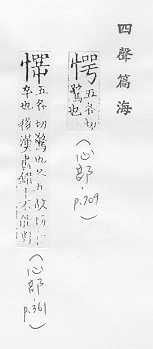 四聲篇海
愕 五各切
驚也
(心部·p.709)
五各切驚也又五故切
也
(心部·p.361)